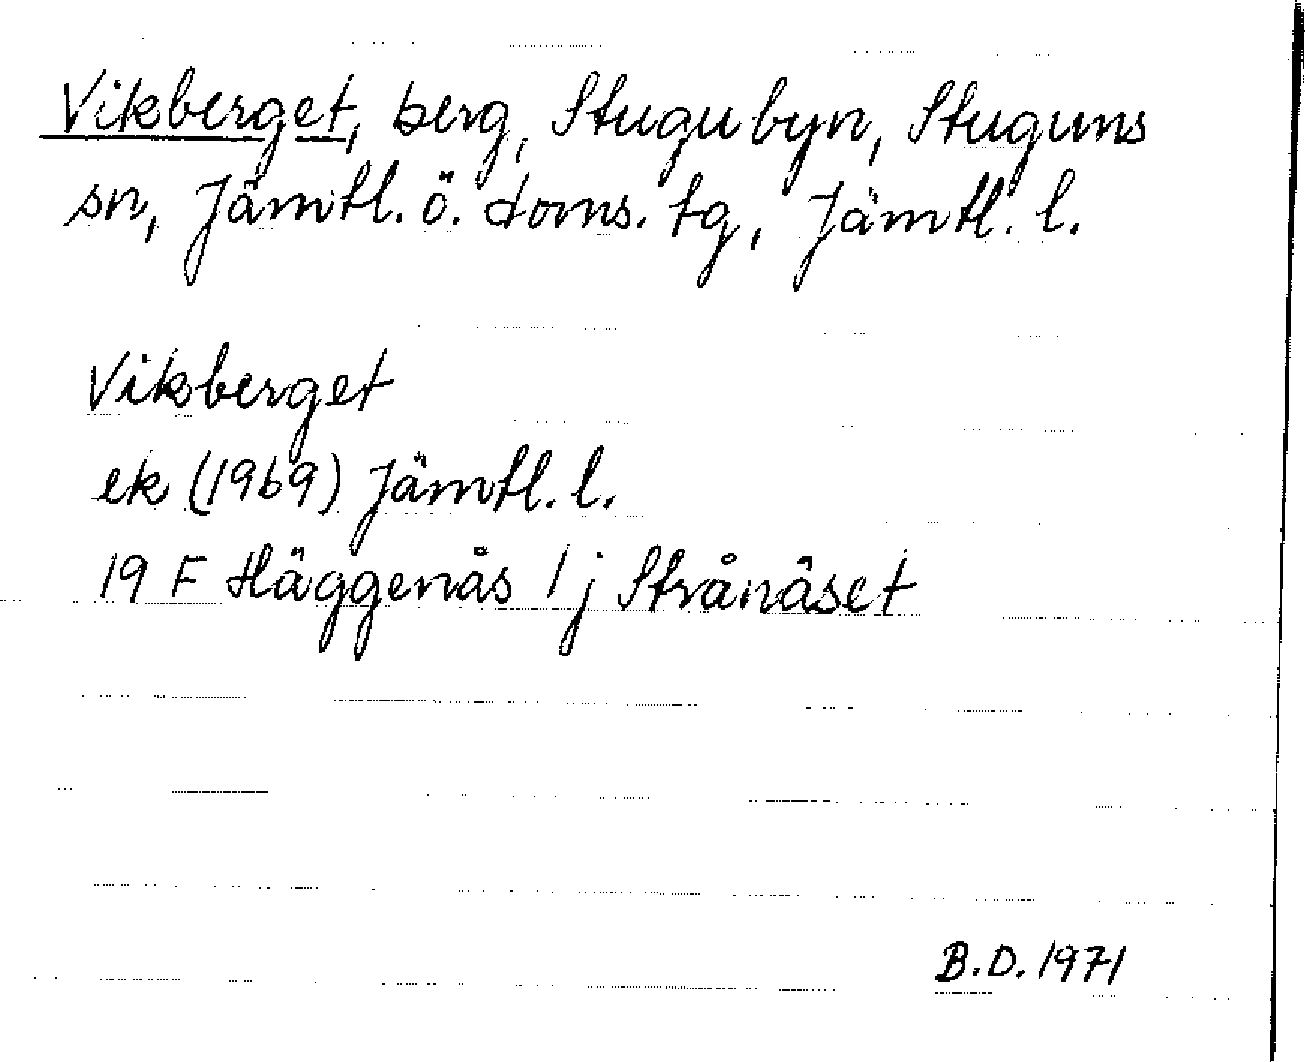 Vikberget, berg, Stugubyn, Stuguns
sn, Jämtl. ö. doms. tg, Jämtl. l.
Vikberget
ek (1969) Jämtl. l.
19 F Häggenås 1 j Strånäset
B.D. 1971